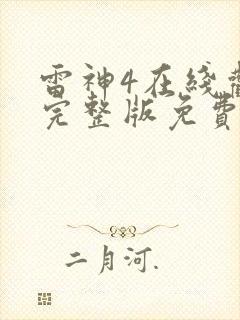 雷神4在线
完整版免费
二月河.